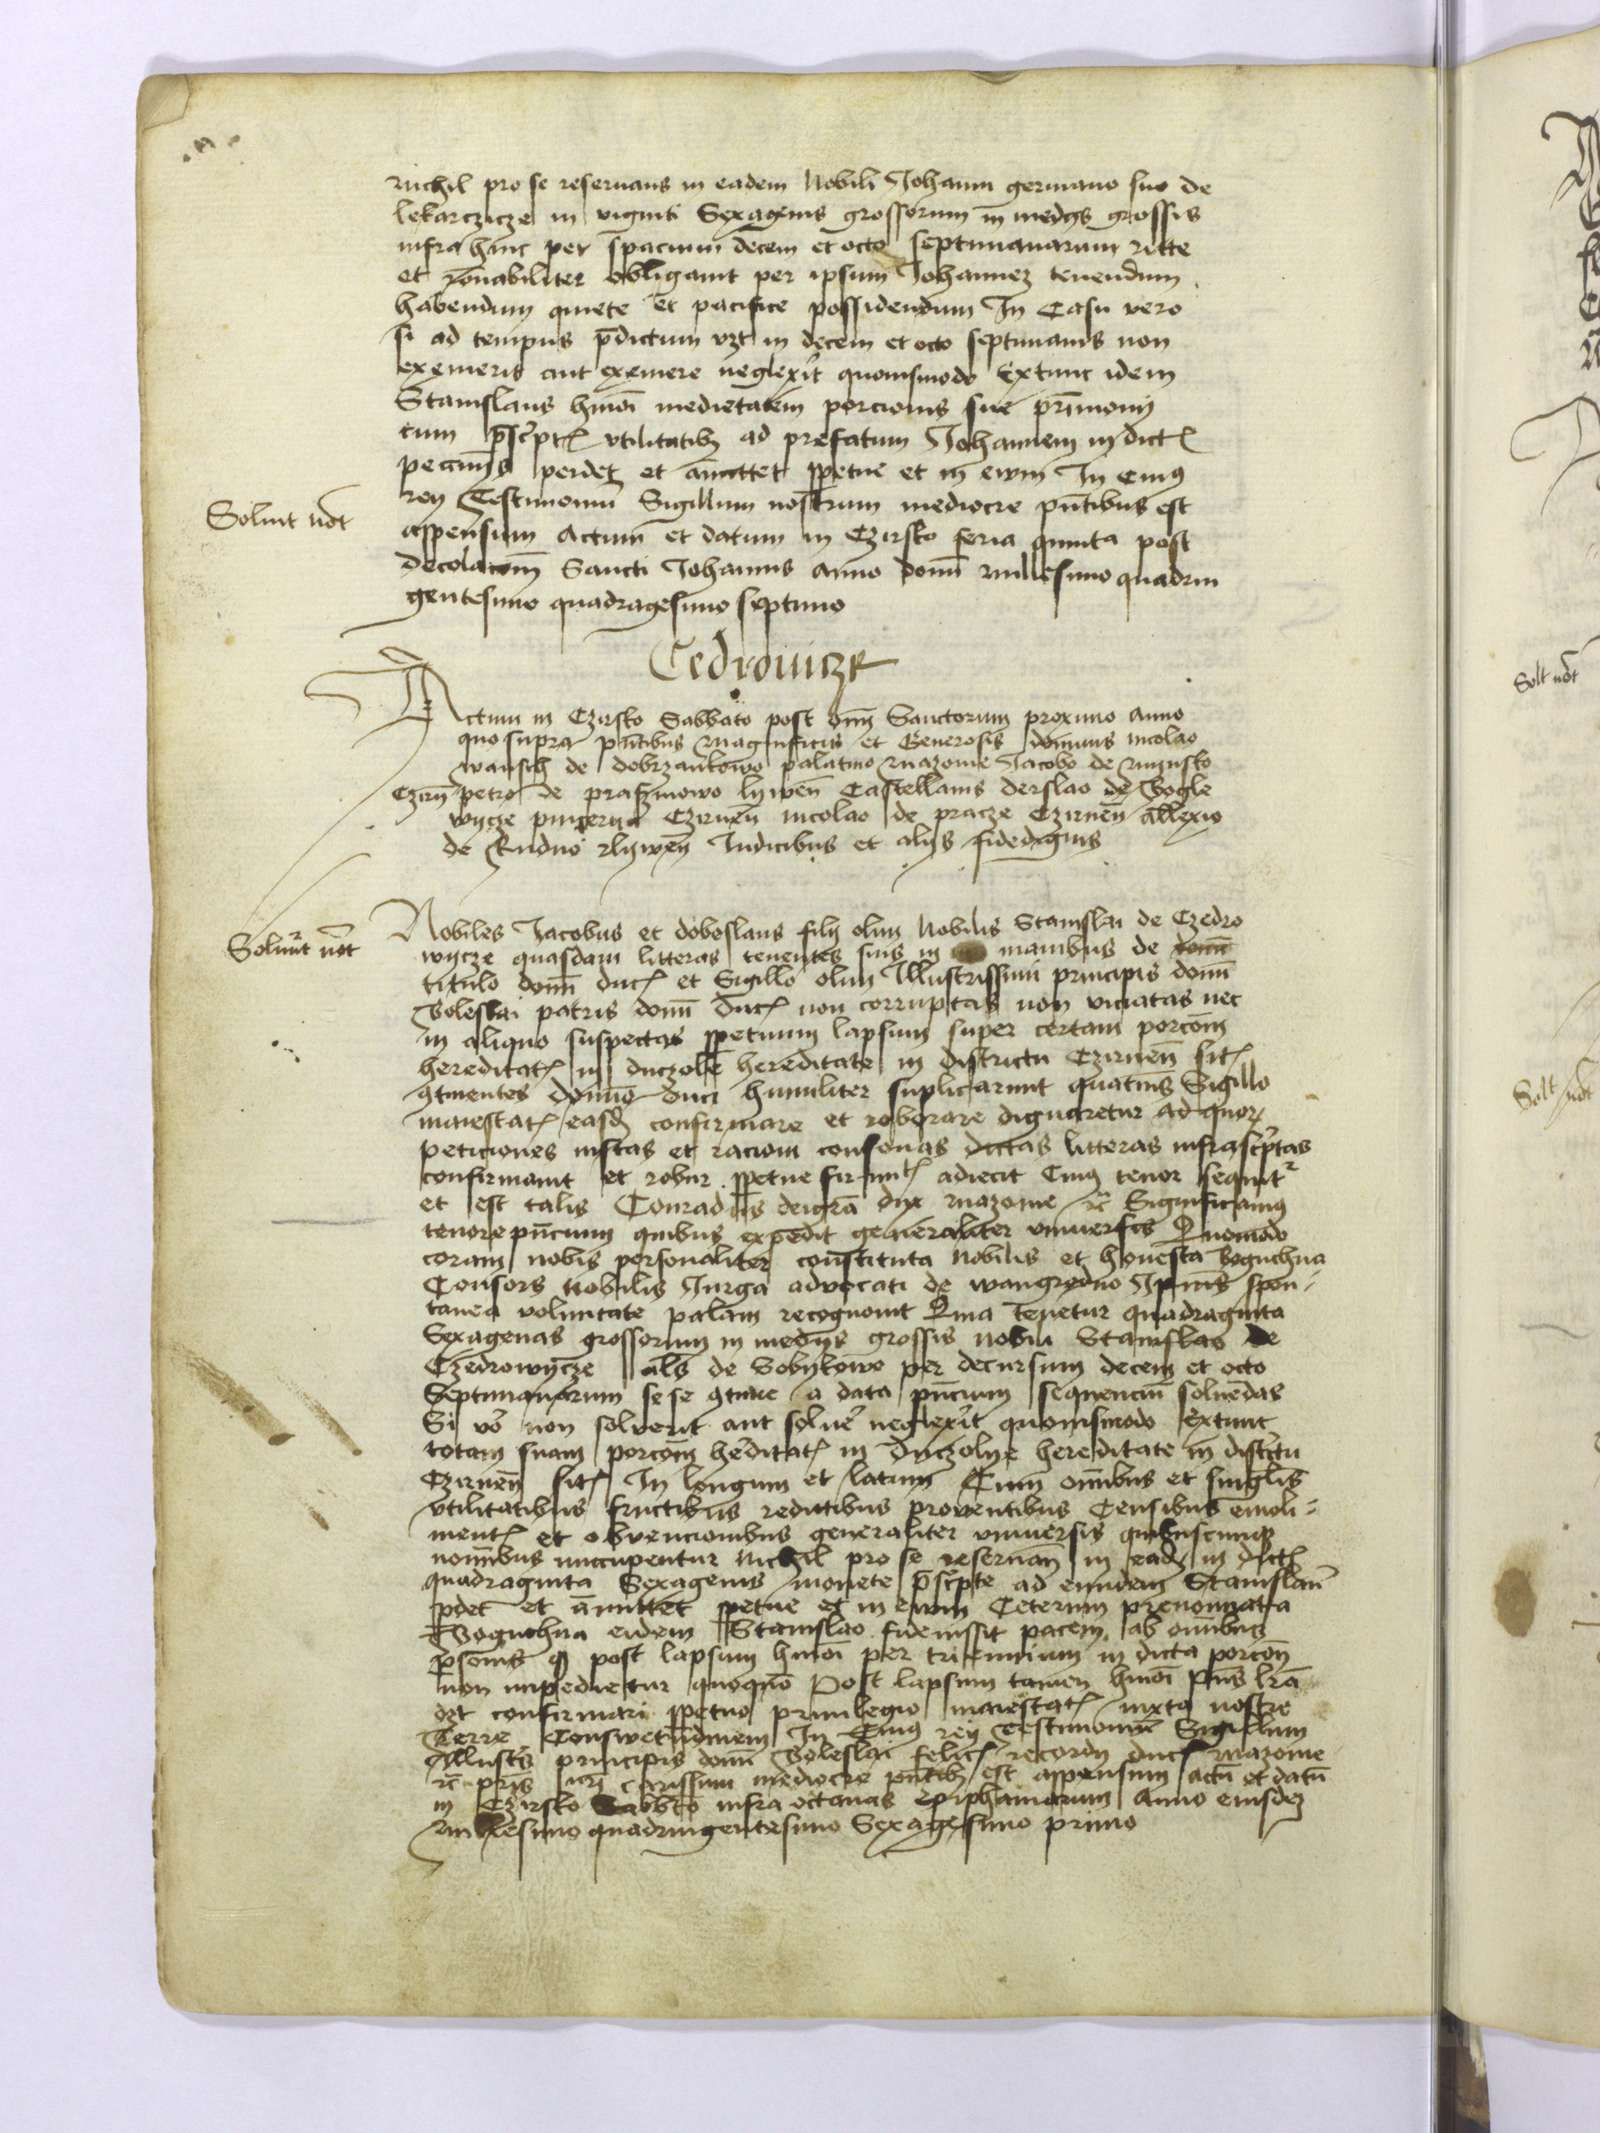 nichil pro se reservans in eadem Nobili Johanni germano suo de
lekarczicze in viginti Sexagenis grossorum in medys grossis
infra hinc per spacium decem et octo septimanarum ritte
et rōnabiliter obligavit per ipsum Johannez tenendum
habendum quiete et pacifice possidendum In Casu vero
si ad tempus p̄dictum vzt in decem et octo septimanis non
exemerit aut exemere neglex'it quovismodo Extunc idem
Stanislaus hmōi medietatem porcionis sue pr̄imonij
cum p̄sc'ptꝭ vtilitatibꝫ ad prefatum Johannem in dictꝭ
pecunijs perdet et amittet ꝑpetue et in ewm In Cuiꝰ
rey Testimoniū Sigillum nostrum mediocre pn̄tibus est
appensum Actum et datum in Czirsko feria quinta post
Solvit nōt
decolacōm Sancti Johannis Anno domī millesimo quadrin
gentesimo quadragesimo septimo
Cedrowicze
Actum in Czirsko Sabbato post om̄ Sanctorum proximo Anno
quo supra pn̄tibus Magnificis et Generosis dominis nicolao
wansch de dobrzankowo palatino Mazovie Jacobo de
Czirn̄ petro de prasmowo lywen̄ Castellanis derslao de Bogle
wycze pincerna Czirnen̄ nicolao de pracze Czirnen̄ allexio
de Rudno lywen̄ Iudicibus et alys fidedignis
Nobiles Jacobus et dobeslaus filij olim Nobilis Stanislai de Czedro
Solver̄t nōt
wycze quasdam litteras tenentes suis in manibus de domī
titulo domī ducꝭ et Sigillo olim Illustrissimi principis domī
Boleslai patris domī ducꝭ non corruptas non viciatas nec
in aliquo suspectas ꝑpetuum lapsum super certam porcōm
hereditatꝭ in duczole hereditate in districtu Czirnen̄ sitꝭ
ꝯtinentes domino duci humiliter suplicarunt quatin̄s Sigillo
maiestatꝭ easdꝫ confirmare et roborare dignaretur ad quoꝝ
peticiones iustas et racioni consonas dictas litteras infrasc'ptas
confirmavit et robur ꝑpetue firmitꝭ adiecit Cuiꝰ tenor sequit'
et est talis Conradus dei gr̄a dux Mazovie ꝛc̄ Significamꝰ
tenore pn̄cium quibus expedit generaliter vniversis Quomodo
coram nobis personaliter constituta Nobilis et honesta Boguchna
Consors Nobilis Jurga advocati de wangrodno Ip̄ius spon-
tanea voluntate palam recognovit Quia tenetur quadraginta
Sexagenas grossorum in medys grossis nobili Stanislao de
Czedrowycze als de Bobykowo per decursum decem et octo
Septimanarum sese ꝯtinue a data pn̄cium sequenciū solvēdas
Si vō non solverit aut solve' neglex'it quovismodo Extunc
totam suam porcōm he'ditatꝭ in duczolye hereditate in dist'ctu
Czirnen̄ sitꝭ In longum et latum Cum om̄ibus et singl'is
vtilitatibus fructibus reditibus proventibus Censibus emoli-
mentꝭ et obvencionibus generaliter vniversis quibuscunqꝫ
nom̄ibus nuccupentur Nichil pro se reservan̄ in eadꝫ in dictꝭ
quadraginta Sexagenis monete p̄sc'pte ad eundem Stanislaū
ꝑdet et āmittet ꝑpetue et in ewm Ceterum prenominata
Boguchna eidem Stanislao fideiussit pacem ab om̄ibus
ꝑsonis qꝫ post lapsum hmōi per triennium in dicta porcōn̄
non impedietur quoquō Post lapsum tamen hmōi pn̄s lr̄a
dꝫt confirmari ꝑpetuo privilegio maiestatꝭ iuxta nostre
Terre Conswetudinem In Cuiꝰ rey Testimoniū Sigillum
Illust's principis domī Boleslai felicꝭ recordij ducꝭ Mazovie
ꝛc̄ pr̄is nr̄i carissimi mediocre pn̄tibꝫ est appensum actū et datū
in Czirsko Sabbto infra octavas epiphaniarum Anno eiusdeꝫ
Millesimo quadringentesimo Sexagesimo primo